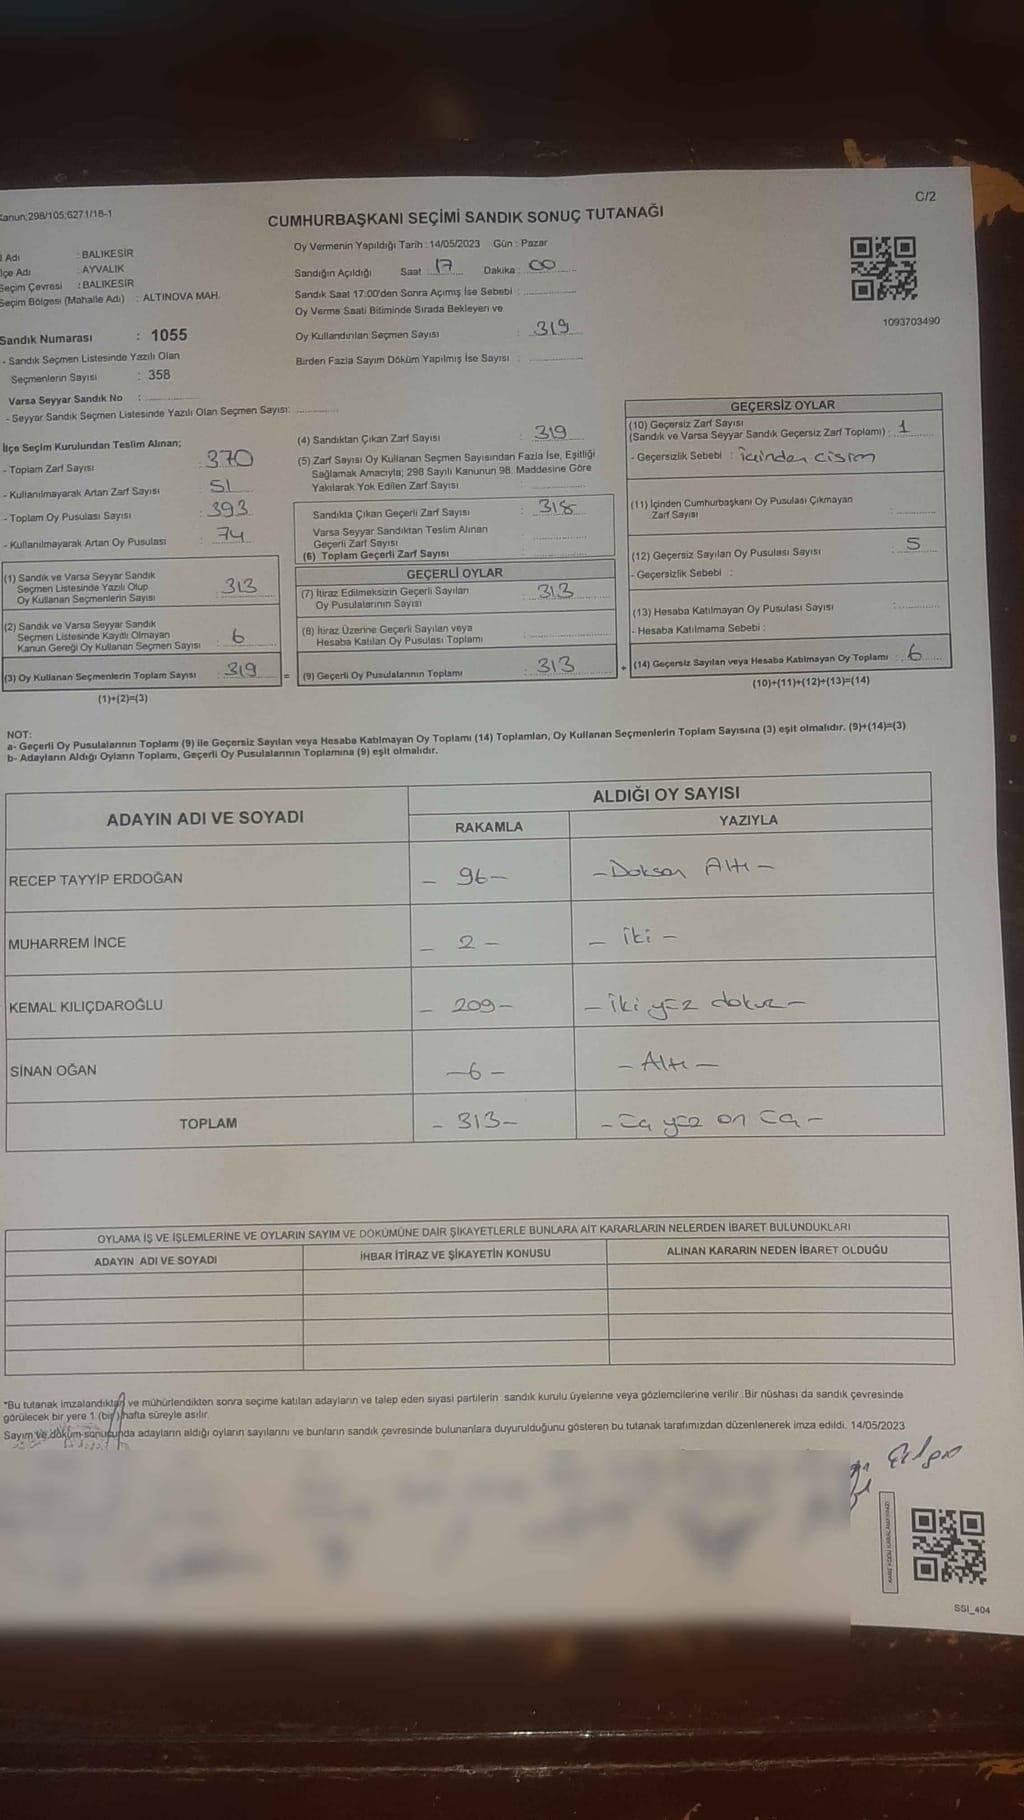 Kanun;298/105;6271/18-1
C/2
CUMHURBAŞKANI SEÇİMİ SANDIK SONUÇ TUTANAĞI
l Adı : BALIKESİR
lçe Adı : AYVALIK
Seçim Çevresi : BALIKESİR
Seçim Bölgesi (Mahalle Adı) : ALTINOVA MAH.
Oy Vermenin Yapıldığı Tarih : 14/05/2023 Gün : Pazar
Sandığın Açıldığı Saat : 17 Dakika : 00
Sandık Saat 17:00'den Sonra Açımış İse Sebebi :
Oy Verme Saati Bitiminde Sırada Bekleyen ve
Oy Kullandırılan Seçmen Sayısı : 319
Birden Fazla Sayım Döküm Yapılmış İse Sayısı :
1093703490
Sandık Numarası : 1055
- Sandık Seçmen Listesinde Yazılı Olan
Seçmenlerin Sayısı : 358
Varsa Seyyar Sandık No :
- Seyyar Sandık Seçmen Listesinde Yazılı Olan Seçmen Sayısı:
İlçe Seçim Kurulundan Teslim Alınan;
- Toplam Zarf Sayısı : 370
- Kullanılmayarak Artan Zarf Sayısı : 51
- Toplam Oy Pusulası Sayısı : 393
- Kullanılmayarak Artan Oy Pusulası : 74
(1) Sandık ve Varsa Seyyar Sandık
Seçmen Listesinde Yazılı Olup
Oy Kullanan Seçmenlerin Sayısı : 313
(2) Sandık ve Varsa Seyyar Sandık
Seçmen Listesinde Kayıtlı Olmayan
Kanun Gereği Oy Kullanan Seçmen Sayısı : 6
(3) Oy Kullanan Seçmenlerin Toplam Sayısı : 319 =
(1)+(2)=(3)
(4) Sandıktan Çıkan Zarf Sayısı : 319
(5) Zarf Sayısı Oy Kullanan Seçmen Sayısından Fazla İse, Eşitliği
Sağlamak Amacıyla; 298 Sayılı Kanunun 98. Maddesine Göre
Yakılarak Yok Edilen Zarf Sayısı :
Sandıkta Çıkan Geçerli Zarf Sayısı : 318
Varsa Seyyar Sandıktan Teslim Alınan
Geçerli Zarf Sayısı :
(6) Toplam Geçerli Zarf Sayısı :
GEÇERLİ OYLAR
(7) İtiraz Edilmeksizin Geçerli Sayılan
Oy Pusulalarının Sayısı : 313
(8) İtiraz Üzerine Geçerli Sayılan veya
Hesaba Katılan Oy Pusulası Toplamı :
(9) Geçerli Oy Pusulalarının Toplamı : 313 +
GEÇERSİZ OYLAR
(10) Geçersiz Zarf Sayısı
(Sandık ve Varsa Seyyar Sandık Geçersiz Zarf Toplamı) : 1
- Geçersizlik Sebebi : İçinden cisim
(11) İçinden Cumhurbaşkanı Oy Pusulası Çıkmayan
Zarf Sayısı :
(12) Geçersiz Sayılan Oy Pusulası Sayısı : 5
- Geçersizlik Sebebi :
(13) Hesaba Katılmayan Oy Pusulası Sayısı :
- Hesaba Katılmama Sebebi :
(14) Geçersiz Sayılan veya Hesaba Katılmayan Oy Toplamı : 6
(10)+(11)+(12)+(13)=(14)
NOT:
a- Geçerli Oy Pusulalarının Toplamı (9) ile Geçersiz Sayılan veya Hesaba Katılmayan Oy Toplamı (14) Toplamları, Oy Kullanan Seçmenlerin Toplam Sayısına (3) eşit olmalıdır. (9)+(14)=(3)
b- Adayların Aldığı Oyların Toplamı, Geçerli Oy Pusulalarının Toplamına (9) eşit olmalıdır.
ADAYIN ADI VE SOYADI ALDIĞI OY SAYISI
RAKAMLA YAZIYLA
RECEP TAYYİP ERDOĞAN - 96 - - Doksan Altı -
MUHARREM İNCE - 2 - - İki -
KEMAL KILIÇDAROĞLU - 209 - - İki yüz dokuz -
SİNAN OĞAN - 6 - - Altı -
TOPLAM - 313 - - Üç yüz on üç -
OYLAMA İŞ VE İŞLEMLERİNE VE OYLARIN SAYIM VE DÖKÜMÜNE DAİR ŞİKAYETLERLE BUNLARA AİT KARARLARIN NELERDEN İBARET BULUNDUKLARI
ADAYIN ADI VE SOYADI İHBAR İTİRAZ VE ŞİKAYETİN KONUSU ALINAN KARARIN NEDEN İBARET OLDUĞU
*Bu tutanak imzalandıktan ve mühürlendikten sonra seçime katılan adayların ve talep eden siyasi partilerin sandık kurulu üyelerine veya gözlemcilerine verilir. Bir nüshası da sandık çevresinde
görülecek bir yere 1 (bir) hafta süreyle asılır.
Sayım ve döküm sonucunda adayların aldığı oyların sayılarını ve bunların sandık çevresinde bulunanlara duyurulduğunu gösteren bu tutanak tarafımızdan düzenlenerek imza edildi. 14/05/2023
SSI_404